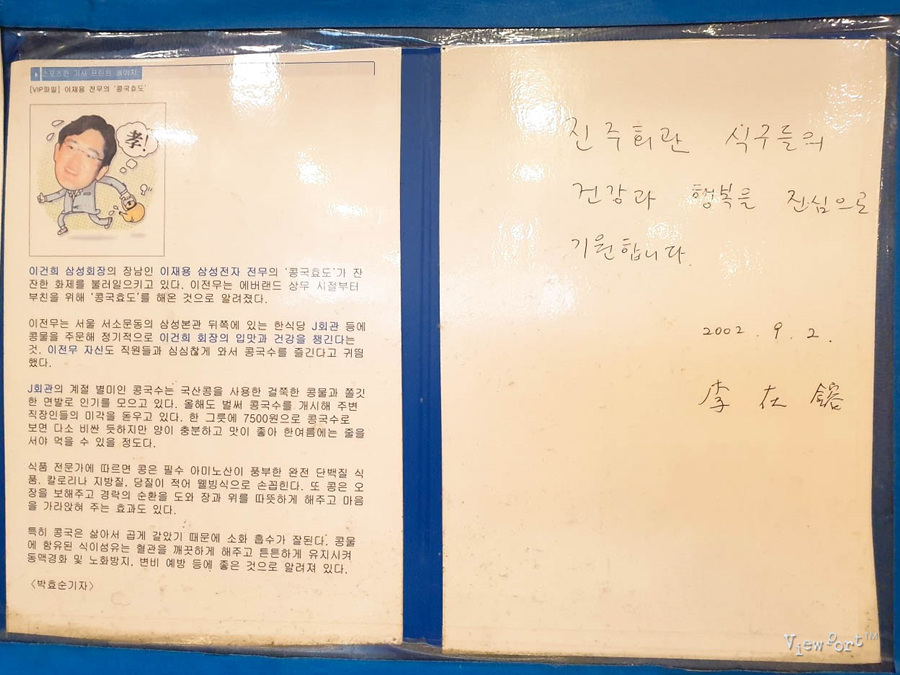 [VIP파일] 이재용 전무의 '콩국효도'
孝!
이건희 삼성회장의 장남인 이재용 삼성전자 전무의 '콩국효도'가 잔
잔한 화제를 불러일으키고 있다. 이전무는 에버랜드 상무 시절부터
부친을 위해 '콩국효도'를 해온 것으로 알려졌다.
이전무는 서울 서소문동의 삼성본관 뒤쪽에 있는 한식당 J회관 등에
콩물을 주문해 정기적으로 이건희 회장의 입맛과 건강을 챙긴다는
것. 이전무 자신도 직원들과 심심찮게 와서 콩국수를 즐긴다고 귀띔
했다.
J회관의 계절 별미인 콩국수는 국산콩을 사용한 걸쭉한 콩물과 쫄깃
한 면발로 인기를 모으고 있다. 올해도 벌써 콩국수를 개시해 주변
직장인들의 미각을 돋우고 있다. 한 그릇에 7500원으로 콩국수로
보면 다소 비싼 듯하지만 양이 충분하고 맛이 좋아 한여름에는 줄을
서야 먹을 수 있을 정도다.
식품 전문가에 따르면 콩은 필수 아미노산이 풍부한 완전 단백질 식
품. 칼로리나 지방질, 당질이 적어 웰빙식으로 손꼽힌다. 또 콩은 오
장을 보해주고 경락의 순환을 도와 장과 위를 따뜻하게 해주고 마음
을 가라앉혀 주는 효과도 있다.
특히 콩국은 삶아서 곱게 갈았기 때문에 소화 흡수가 잘된다. 콩물
에 함유된 식이섬유는 혈관을 깨끗하게 해주고 튼튼하게 유지시켜
동맥경화 및 노화방지, 변비 예방 등에 좋은 것으로 알려져 있다.
〈박효순기자〉
진주회관 식구들의
건강과 행복을 진심으로
기원합니다.
2002. 9. 2.
李在鎔
Viewport™